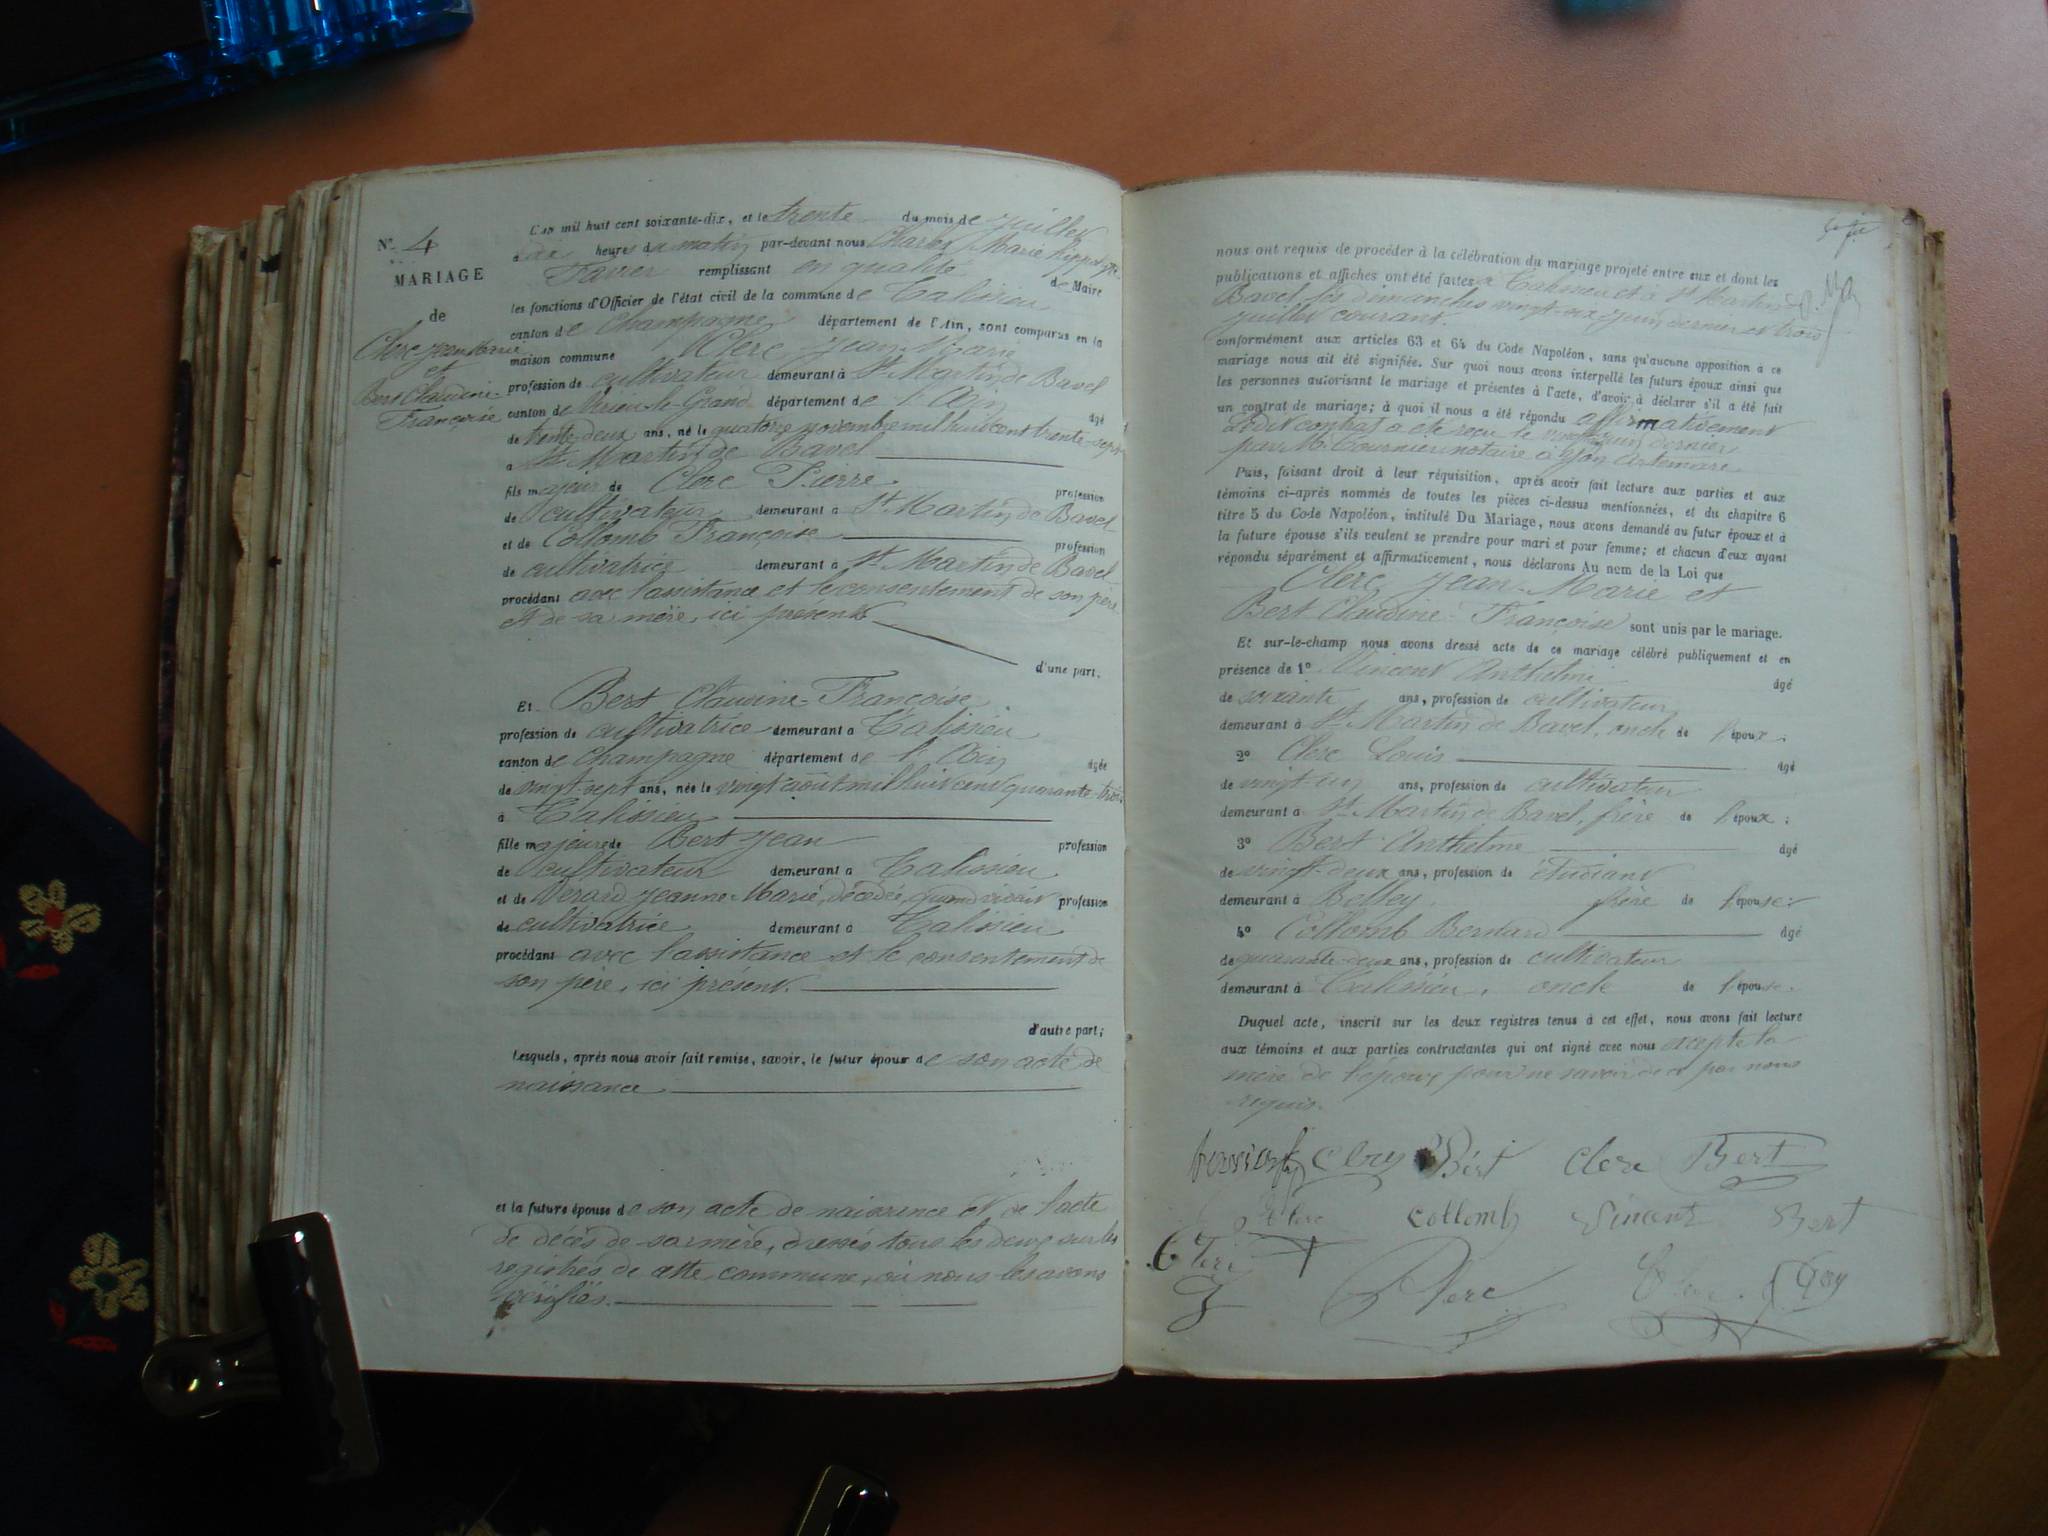 N° 4
MARIAGE
de
Clerc Jean Marie
et
Bert Claudine
Françoise
L'an mil huit cent soixante-dix, et le trente du mois de juillet
à dix heures du matin par-devant nous Charles Marie Hippolyte
Tavier remplissant en qualité de Maire
les fonctions d'Officier de l'état civil de la commune de Talissieu
canton de Champagne département de l'Ain, sont comparus en la
maison commune Clerc Jean-Marie
profession de cultivateur demeurant à St Martin de Bavel
canton de Virieu-le-Grand département de l'Ain âgé
de trente deux ans, né le quatorze novembre mil huit cent trente-sept
à St Martin de Bavel
fils majeur de Clerc Pierre profession
de cultivateur demeurant à St Martin de Bavel
et de Collomb Françoise profession
de cultivatrice demeurant à St Martin de Bavel
procédant avec l'assistance et le consentement de son père
et de sa mère, ici présents
d'une part.
Et Bert Claudine-Françoise
profession de cultivatrice demeurant à Talissieu
canton de Champagne département de l'Ain âgée
de vingt-sept ans, née le vingt août mil huit cent quarante-trois
à Talissieu
fille majeure de Bert Jean profession
de cultivateur demeurant à Talissieu
et de Verard Jeanne-Marie, décédée, quand vivait profession
de cultivatrice demeurant à Talissieu
procédant avec l'assistance et le consentement de
son père, ici présent.
d'autre part;
Lesquels, après nous avoir fait remise, savoir, le futur époux de son acte de
naissance
et la future épouse de son acte de naissance et de l'acte
de décès de sa mère, dressés tous les deux sur les
registres de cette commune, où nous les avons
vérifiés.
nous ont requis de procéder à la célébration du mariage projeté entre eux et dont les
publications et affiches ont été faites à Talissieu et à St Martin de
Bavel les dimanches vingt-six juin dernier et trois
juillet courant.
conformément aux articles 63 et 64 du Code Napoléon, sans qu'aucune opposition à ce
mariage nous ait été signifiée. Sur quoi nous avons interpellé les futurs époux ainsi que
les personnes autorisant le mariage et présentes à l'acte, d'avoir à déclarer s'il a été fait
un contrat de mariage; à quoi il nous a été répondu affirmativement
Ledit contrat a été reçu le vingt juin dernier
par Me Tournier notaire à Yon Artemare
Puis, faisant droit à leur réquisition, après avoir fait lecture aux parties et aux
témoins ci-après nommés de toutes les pièces ci-dessus mentionnées, et du chapitre 6
titre 5 du Code Napoléon, intitulé Du Mariage, nous avons demandé au futur époux et à
la future épouse s'ils veulent se prendre pour mari et pour femme; et chacun d'eux ayant
répondu séparément et affirmativement, nous déclarons Au nom de la Loi que
Clerc Jean-Marie et
Bert Claudine-Françoise sont unis par le mariage.
Et sur-le-champ nous avons dressé acte de ce mariage célébré publiquement et en
présence de 1° Vincent Anthelme âgé
de soixante ans, profession de cultivateur
demeurant à St Martin de Bavel, oncle de l'époux;
2° Clerc Louis âgé
de vingt-un ans, profession de cultivateur
demeurant à St Martin de Bavel, frère de l'époux;
3° Bert Anthelme âgé
de vingt-deux ans, profession de étudiant
demeurant à Belley, frère de l'épouse;
4° Collomb Bernard âgé
de quarante-deux ans, profession de cultivateur
demeurant à Talissieu, oncle de l'épouse.
Duquel acte, inscrit sur les deux registres tenus à cet effet, nous avons fait lecture
aux témoins et aux parties contractantes qui ont signé avec nous excepté la
mère de l'époux, pour ne savoir de ce par nous
requis.
Bert Clerc Bert
Clerc Collomb Vincent Bert
Clerc